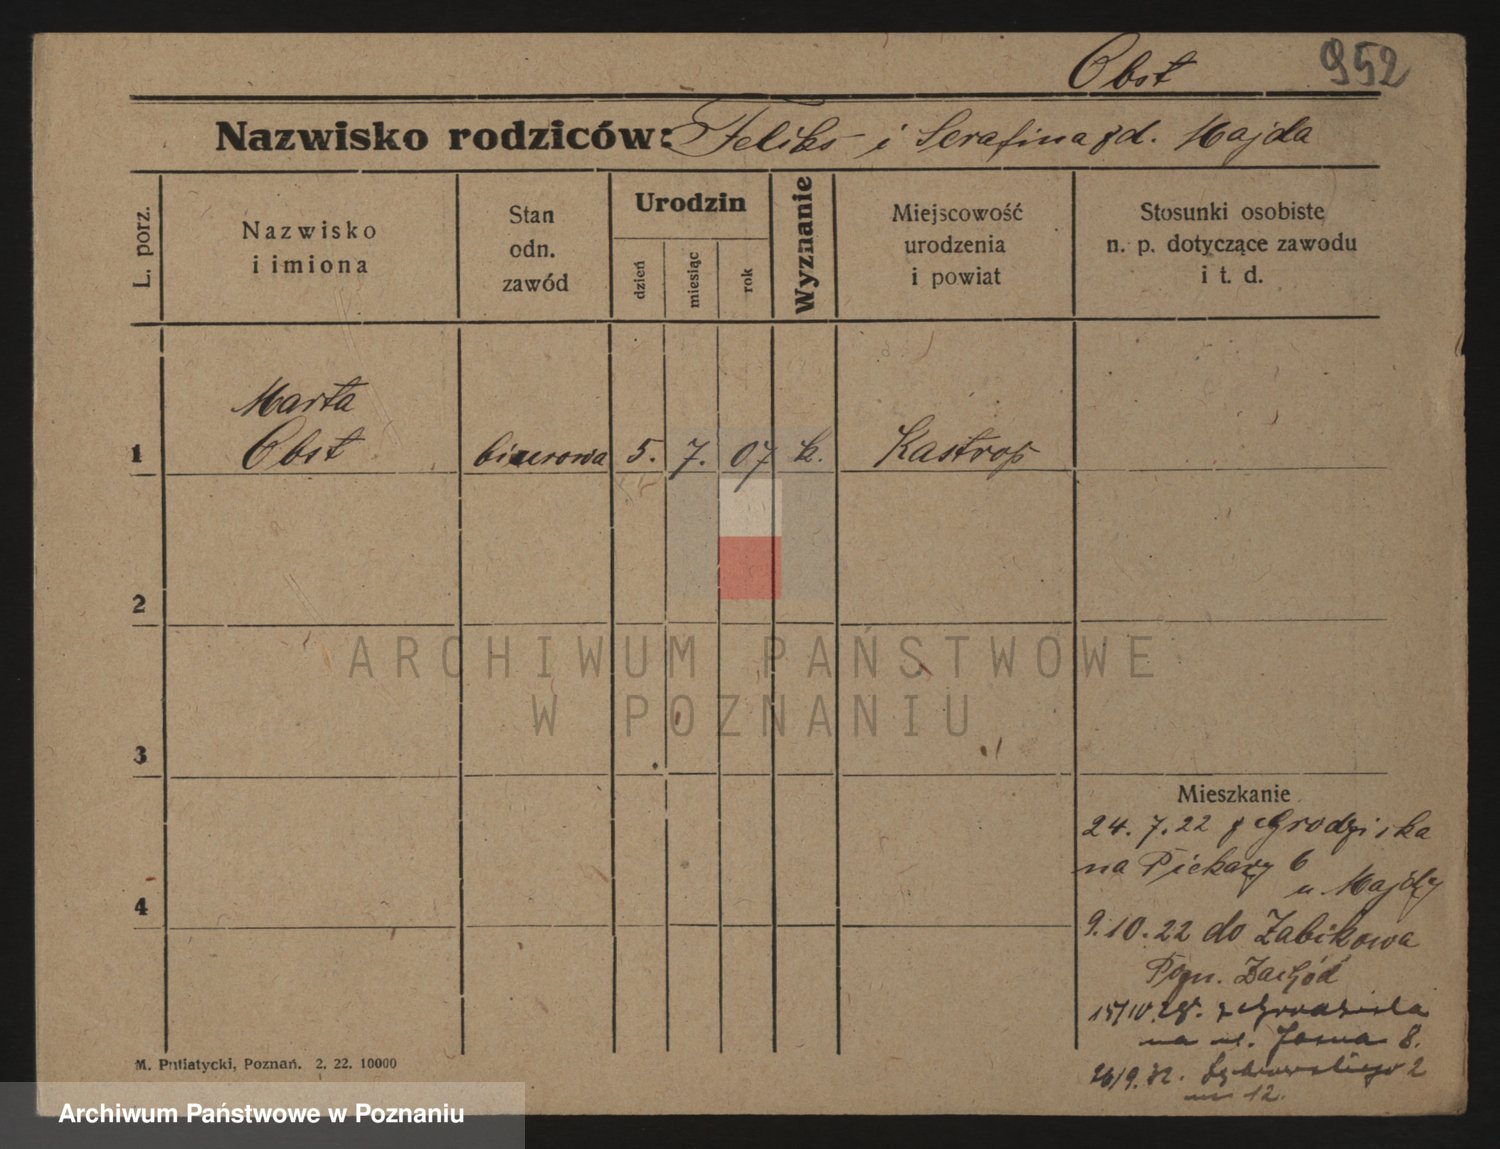 Obst 952
Nazwisko rodziców: Feliks i Serafina zd. Majda
L. porz.
Nazwisko
i imiona
Stan
odn.
zawód
Urodzin
dzień
miesiąc
rok
Wyznanie
Miejscowość
urodzenia
i powiat
Stosunki osobiste
n. p. dotyczące zawodu
i t. d.
Marta
1 Obst biurowa 5. 7. 07 k. Kastrop
2
ARCHIWUM PAŃSTWOWE
W POZNANIU
3
Mieszkanie
24. 7. 22 z Grodziska
na Piekary 6
u. Majdy
4
9. 10. 22 do Żabikowa
Pozn. Zachód
15/10. 28. z Grodziska
na ul. Jasna 8.
26/9. 32. 2
12.
M. Putiatycki, Poznań. 2. 22. 10000
Archiwum Państwowe w Poznaniu